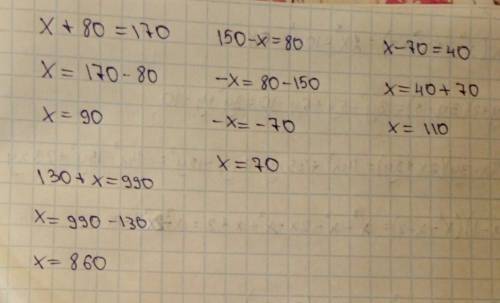 x + 80 = 170
x = 170 - 80
x = 90
150 - x = 80
-x = 80 - 150
-x = -70
x = 70
x - 70 = 40
x = 40 + 70
x = 110
130 + x = 990
x = 990 - 130
x = 860